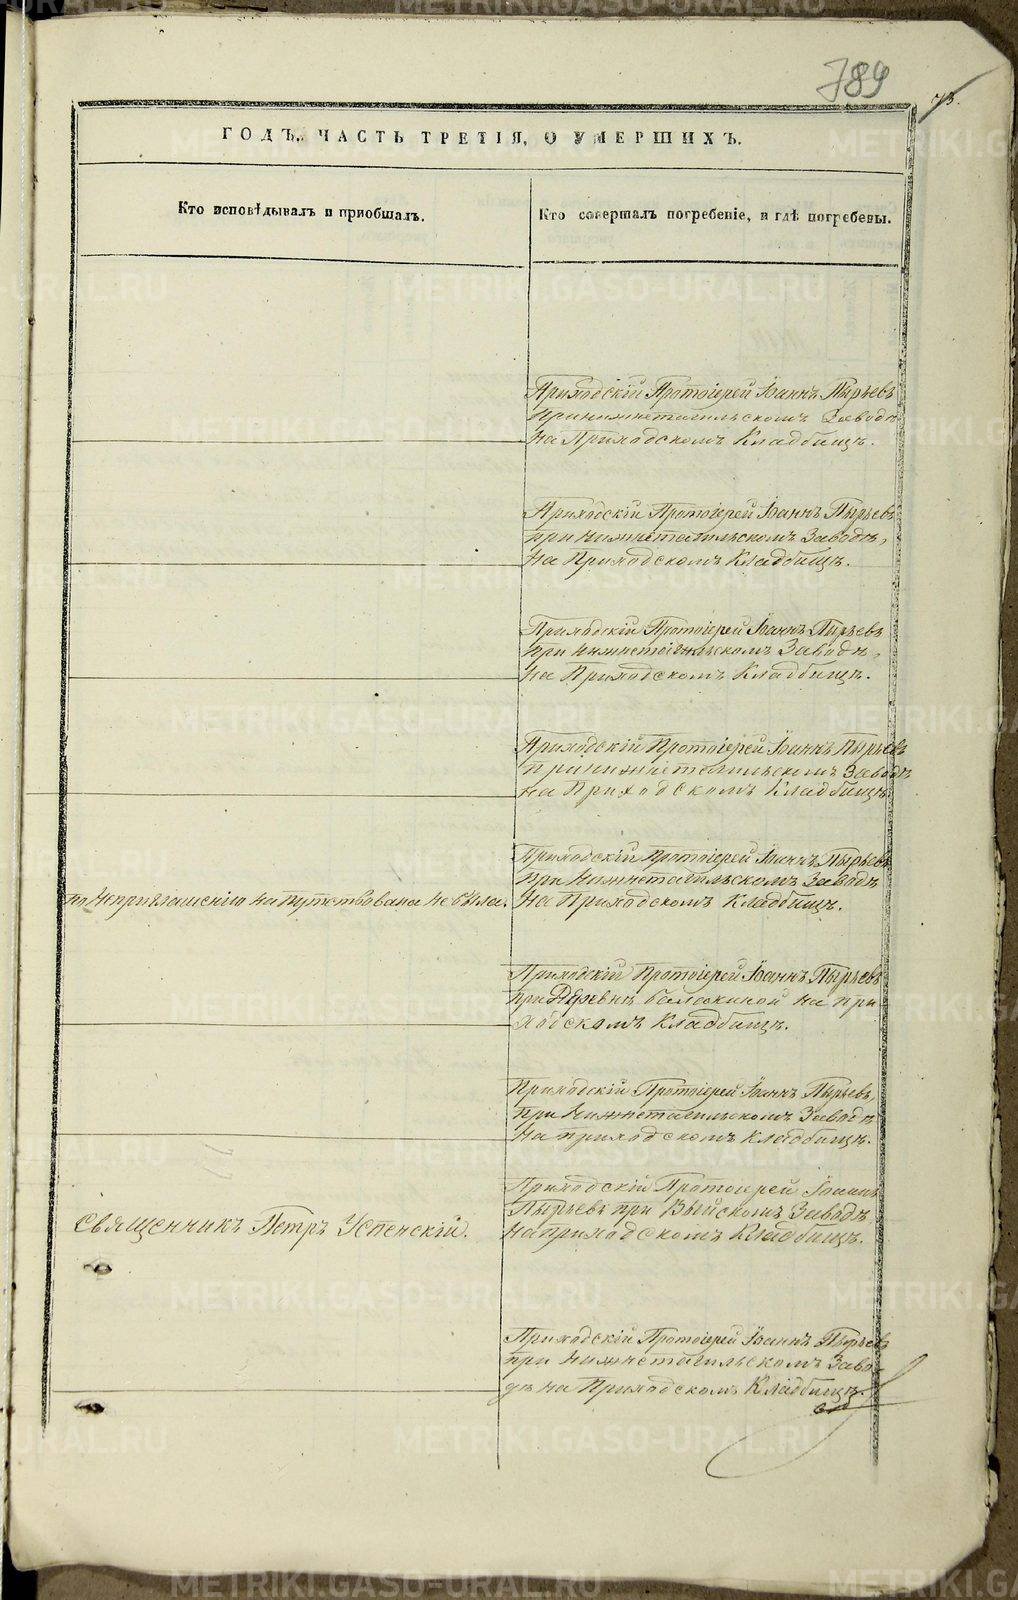 789
73.
ГОДЪ, ЧАСТЬ ТРЕТІЯ, О УМЕРШИХЪ.
Кто исповѣдывалъ и пріобщалъ.
Кто совершалъ погребеніе, и гдѣ погребены.
Приходскій Протоіерей Іоаннъ Пырьевъ
при нижнетагильскомъ Заводѣ
На Приходскомъ Кладбищѣ.
Приходскій Протоіерей Іоаннъ Пырьевъ
при нижнетагильскомъ Заводѣ,
На Приходскомъ Кладбищѣ.
Приходскій Протоіерей Іоаннъ Пырьевъ
при нижнетагильскомъ Заводѣ,
На Приходскомъ Кладбищѣ.
Приходскій Протоіерей Іоаннъ Пырьевъ
при нижнетагильскомъ Заводѣ
на Приходскомъ Кладбищѣ
по Неприглашенію напутствована не была.
Приходскій Протоіерей Іоаннъ Пырьевъ
При Нижнетагильскомъ Заводѣ
На Приходскомъ Кладбищѣ.
Приходскій Протоіерей Іоаннъ Пырьевъ
при Деревнѣ балакиной на при-
ходскомъ Кладбищѣ.
Приходскій Протоіерей Іоаннъ Пырьевъ,
при Нижнетагильскомъ Заводѣ
На приходскомъ Кладбищѣ.
Священникъ Петръ Успенскій.
Приходскій Протоіерей Іоаннъ
Пырьевъ при Выйскомъ Заводѣ
На приходскомъ Кладбищѣ.
Приходскій Протоіерей Іоаннъ Пырьевъ
при Нижнетагильскомъ Заво-
дѣ на Приходскомъ Кладбищѣ.
METRIKI.GASO-URAL.RU